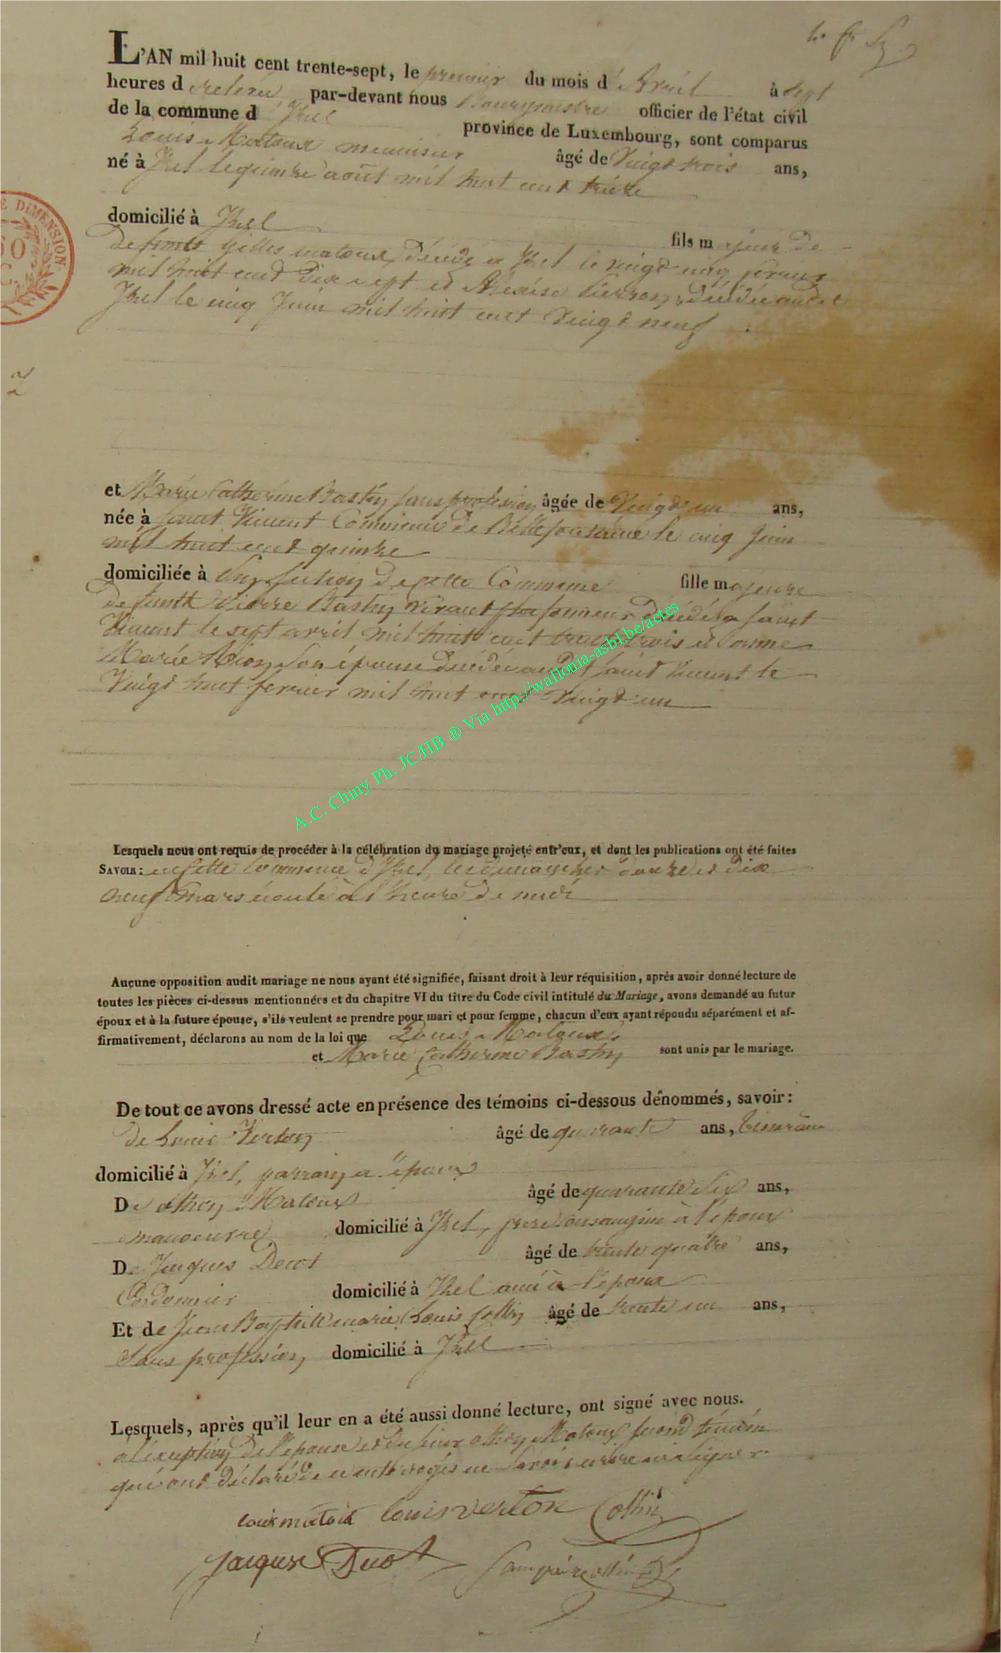 L'AN mil huit cent trente-sept, le premier du mois d'Avril à sept
heures d relevée par-devant nous Bourgmestre officier de l'état civil
de la commune d'Izel province de Luxembourg, sont comparus
Louis Matoux menuisier âgé de Vingt trois ans,
né à Izel le quinze août mil huit cent treize
domicilié à Izel fils majeur de
defunts Gilles matoux, décédé à Izel le vingt cinq
mil huit cent dix sept et Pierron, décédée audit
Izel le cinq Juin mil huit cent Vingt neuf
et Marie Catherine Bastin sans profession âgée de Vingt un ans,
née à Saint Vincent Commune de Bellefontaine le cinq Juin
mil huit cent quinze
domiciliée à section de cette Commune fille majeure
de funts Pierre Bastin vivant décédé à Saint
Vincent le sept avril mil huit cent trois et
Marie son épouse décédée audit Saint Vincent le
Vingt huit fevrier mil huit cent Vingt un
Lesquels nous ont requis de procéder à la célébration du mariage projeté entr'eux, et dont les publications ont été faites
SAVOIR: en cette Commune d'Izel, les dimanches douze et dix
neuf mars écoulé à l'heure de midi
Aucune opposition audit mariage ne nous ayant été signifiée, faisant droit à leur réquisition, après avoir donné lecture de
toutes les pièces ci-dessus mentionnées et du chapitre VI du titre du Code civil intitulé du Mariage, avons demandé au futur
époux et à la future épouse, s'ils veulent se prendre pour mari et pour femme, chacun d'eux ayant répondu séparément et af-
firmativement, déclarons au nom de la loi que Louis Matoux
et Marie Catherine Bastin sont unis par le mariage.
De tout ce avons dressé acte en présence des témoins ci-dessous dénommés, savoir:
de Louis Verton âgé de quarante ans,
domicilié à Izel, à l'époux
De othon Matoux âgé de quarante six ans,
manoeuvre domicilié à Izel, frere consanguin à l'époux
De Jacques Decot âgé de trente quatre ans,
Cordonnier domicilié à Izel ami à l'époux
Et de Jean Baptiste marie Louis Collin âgé de trente un ans,
Sans profession domicilié à Izel
Lesquels, après qu'il leur en a été aussi donné lecture, ont signé avec nous.
à l'exception de l'épouse et du sieur othon Matoux second témoin
qui ont déclaré de ce interrogés ne savoir écrire ni signer
Louis matoux Louis verton Collin
Jacques Decot
E DIMENSION.
50
A.C. Chiny Ph. JC/HB ® Via http://wallonia-asbl.be/actes